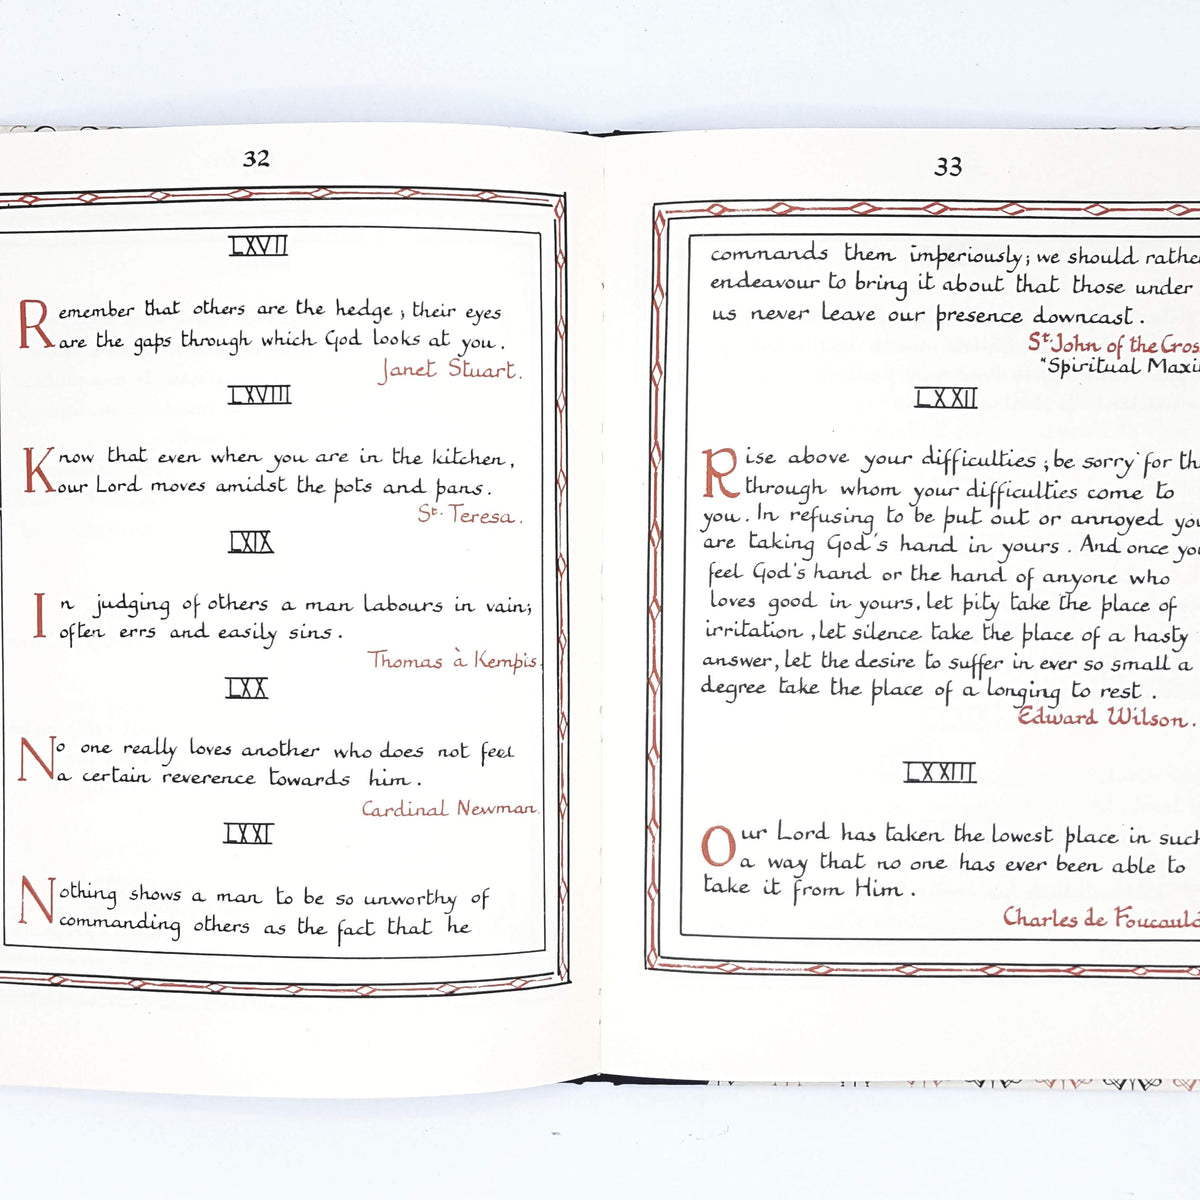 32
LXVII
Remember that others are the hedge; their eyes
are the gaps through which God looks at you.
Janet Stuart.
LXVIII
Know that even when you are in the kitchen,
our Lord moves amidst the pots and pans.
St. Teresa.
LXIX
In judging of others a man labours in vain;
often errs and easily sins.
Thomas à Kempis.
LXX
No one really loves another who does not feel
a certain reverence towards him.
Cardinal Newman.
LXXI
Nothing shows a man to be so unworthy of
commanding others as the fact that he
33
commands them imperiously; we should
endeavour to bring it about that those under
us never leave our presence downcast.
St. John of the
"Spiritual
LXXII
Rise above your difficulties; be sorry for
through whom your difficulties come to
you. In refusing to be put out or annoyed
are taking God's hand in yours. And once
feel God's hand or the hand of anyone who
loves good in yours, let pity take the place of
irritation, let silence take the place of a hasty
answer, let the desire to suffer in ever so small a
degree take the place of a longing to rest.
Edward Wilson.
LXXIII
Our Lord has taken the lowest place in such
a way that no one has ever been able to
take it from Him.
Charles de Foucauld